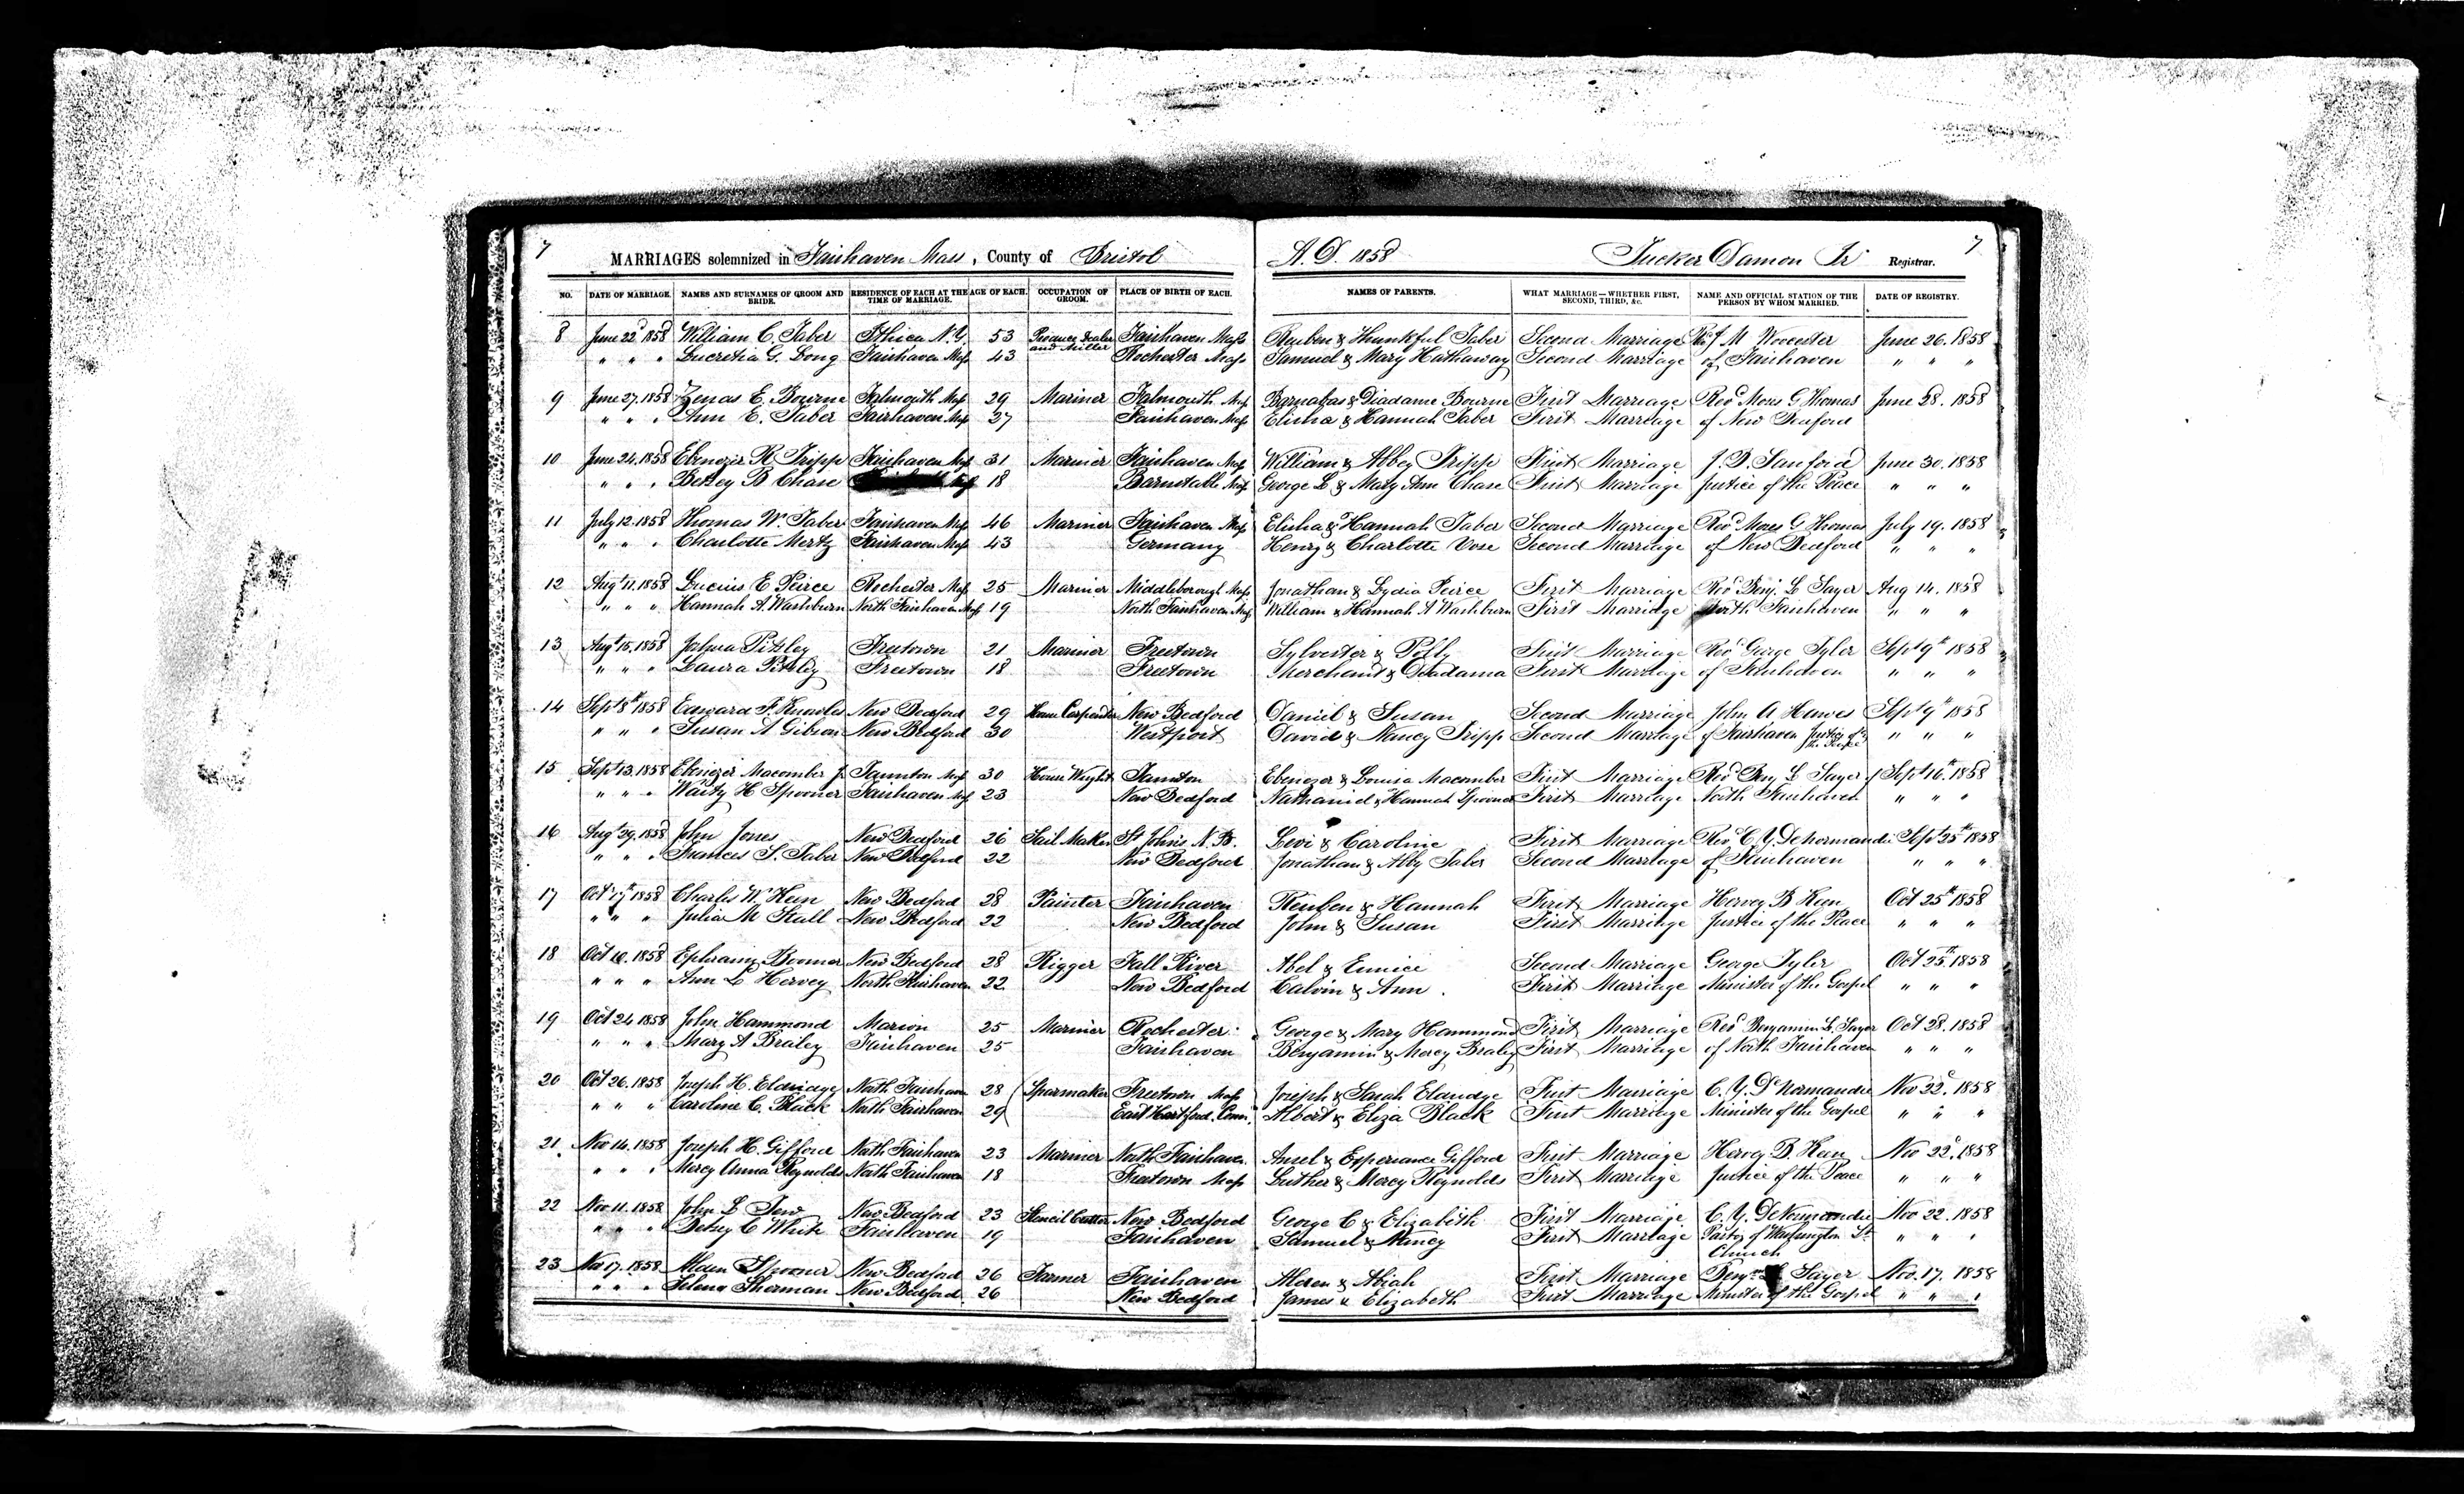 7 MARRIAGES solemnized in Fairhaven Mass, County of Bristol A.D. 1858 Tucker Damon Jr Registrar. 7
NO. DATE OF MARRIAGE. NAMES AND SURNAMES OF GROOM AND BRIDE. RESIDENCE OF EACH AT THE TIME OF MARRIAGE. AGE OF EACH. OCCUPATION OF GROOM. PLACE OF BIRTH OF EACH. NAMES OF PARENTS. WHAT MARRIAGE—WHETHER FIRST, SECOND, THIRD, &c. NAME AND OFFICIAL STATION OF THE PERSON BY WHOM MARRIED. DATE OF REGISTRY.
8 June 22d 1858 William C. Taber Ithica N.Y. 53 Dealer and Miller Fairhaven Mass Reuben & Thunkful Taber Second Marriage Worcester June 26. 1858
" " " Lucretia G. Long Fairhaven Mass 43 Rochester Mass Samuel & Mary Hathaway Second Marriage of Fairhaven " " "
9 June 27. 1858 Zenas E. Bourne Falmouth Mass 29 Mariner Falmouth Mass Barnabas & Diadame Bourne First Marriage Revd Moses G Thomas June 28. 1858
" " " Ann E. Taber Fairhaven Mass 27 Fairhaven Mass Elisha & Hannah Taber First Marriage of New Bedford
10 June 24. 1858 Ebenezer R. Tripp Fairhaven Mass 31 Mariner Fairhaven Mass William & Abbey Tripp First Marriage Sanford June 30. 1858
" " " Betsey B Chase 18 Barnstable Mass George L & Mary Ann Chase First Marriage Justice of the Peace " " "
11 July 12. 1858 Thomas W. Taber Fairhaven Mass 46 Mariner Fairhaven Mass Elisha & Hannah Taber Second Marriage Revd Moses G Thomas July 19. 1858
" " " Charlotte Mertz Fairhaven Mass 43 Germany Henry & Charlotte Vose Second Marriage of New Bedford " " "
12 Augt 11. 1858 Lucius E Peirce Rochester Mass 25 Mariner Middleborough Mass Jonathan & Lydia Peirce First Marriage Revd Benj. L Sayer Aug 14. 1858
" " " Hannah A. Washburn North Fairhaven Mass 19 North Fairhaven Mass William & Hannah A Washburn First Marriage North Fairhaven " " "
13 Augt 15. 1858 Joshua Pitsley Freetown 21 Mariner Freetown Sylvester & Polly First Marriage Revd George Tyler Sept 9th 1858
" " " Laura Pitsley Freetown 18 Freetown Merchant & Diadama First Marriage of Fairhaven " " "
14 Sept 8th 1858 Edward F. Knowles New Bedford 29 House Carpenter New Bedford Daniel & Susan Second Marriage John A Hawes Sept 9th 1858
" " " Susan A Gibson New Bedford 30 Westport David & Nancy Tripp Second Marriage of Fairhaven Justice of the Peace " " "
15 Sept 13. 1858 Ebenezer Macomber Jr Taunton Mass 30 House Wright Taunton Ebenezer & Louisa Macomber First Marriage Revd Benj L Sayer of Sept 16th 1858
" " " Waity H Spooner Fairhaven Mass 23 New Bedford Nathaniel & Hannah Spooner First Marriage North Fairhaven " " "
16 Augt 29. 1858 John Jones New Bedford 26 Sail Maker St Johns N.B. Levi & Caroline First Marriage Rev C. Y. DeNormandie Sept 25th 1858
" " " Frances S. Taber New Bedford 22 New Bedford Jonathan & Abby Taber Second Marriage of Fairhaven " " "
17 Oct 17th 1858 Charles W. Keen New Bedford 28 Painter Fairhaven Reuben & Hannah First Marriage Hervey B Keen Oct 25th 1858
" " " Julia M Stall New Bedford 22 New Bedford John & Susan First Marriage Justice of the Peace " " "
18 Oct 10. 1858 Ephraim Boomer New Bedford 28 Rigger Fall River Abel & Eunice Second Marriage George Tyler Oct 25th. 1858
" " " Ann L Hervey North Fairhaven 22 New Bedford Calvin & Ann First Marriage Minister of the Gospel " " "
19 Oct 24 1858 John Hammond Marion 25 Mariner Rochester George & Mary Hammond First Marriage Revd Benjamin L. Sayer Oct 28. 1858
" " " Mary A Braley Fairhaven 25 Fairhaven Benjamin & Mercy Braley First Marriage of North Fairhaven " " "
20 Oct 26. 1858 Joseph H. Eldridge North Fairhaven 28 Sparmaker Freetown Mass Joseph & Sarah Eldridge First Marriage C. Y. DeNormandie Nov 22d. 1858
" " " Caroline C. Black North Fairhaven 29 East Hartford. Conn. Albert & Eliza Black First Marriage Minister of the Gospel " " "
21. Nov 14. 1858 Joseph H. Gifford North Fairhaven 23 Mariner North Fairhaven Ansel & Experiance Gifford First Marriage Hervey B. Keen Nov 22d. 1858
" " " Mercy Anna Reynolds North Fairhaven 18 Freetown Mass Luther & Mercy Reynolds First Marriage Justice of the Peace " " "
22 Nov 11. 1858 John L New Bedford 23 Stencil Cutter New Bedford George C & Elizabeth First Marriage C. Y. DeNormandie Nov 22. 1858
" " " Betsey C White Fairhaven 19 Fairhaven Samuel & Nancy First Marriage Pastor of Washington St. Church " " "
23 Nov 17. 1858 Alden Spooner New Bedford 26 Farmer Fairhaven Alden & Abiah First Marriage Benj. L. Sayer Nov. 17. 1858
" " " Selena Sherman New Bedford 26 New Bedford James & Elizabeth First Marriage Minister of the Gospel " " "